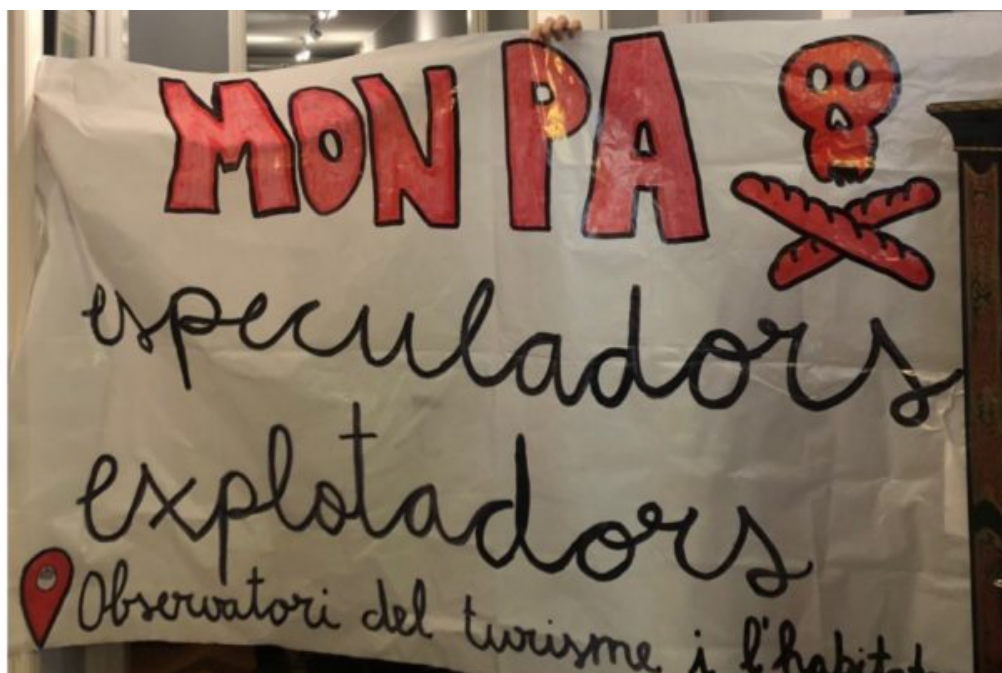 MON PA
especuladors
explotadors
Observatori del turisme i l'habitat